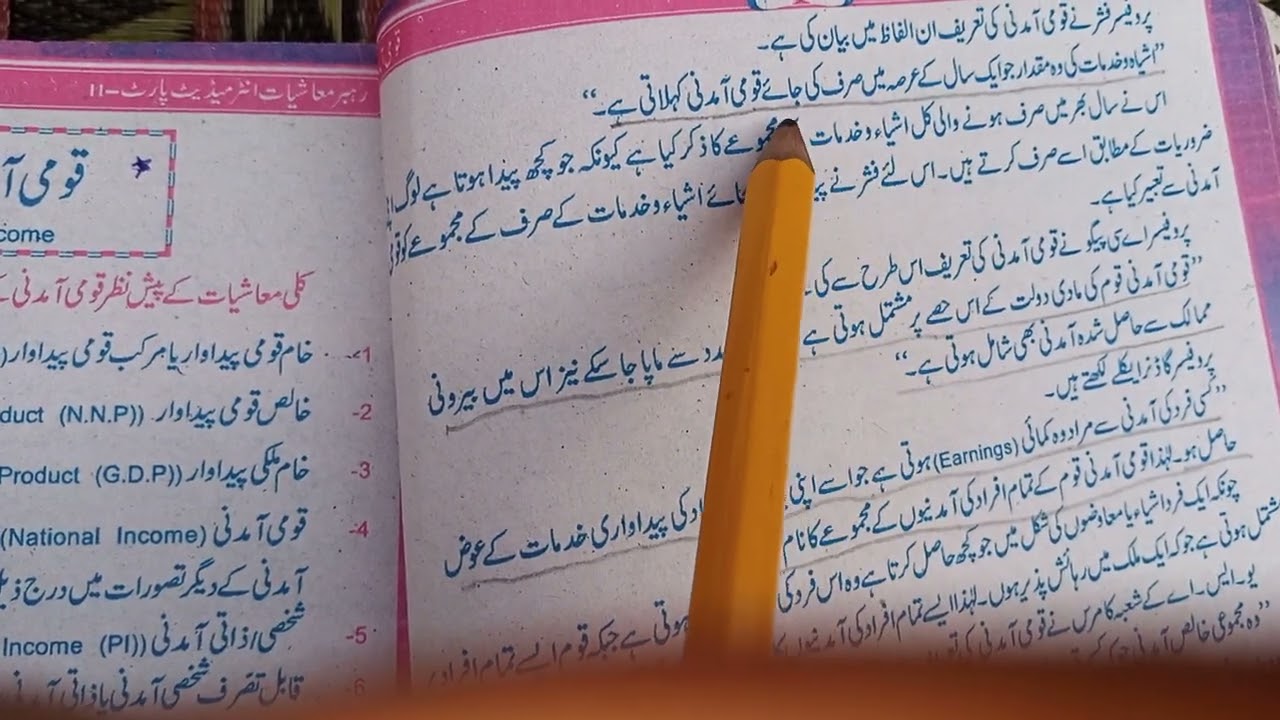 پروفیسر فشر نے قومی آمدنی کی تعریف ان الفاظ میں بیان کی ہے۔
”اشیاء و خدمات کی وہ مقدار جو ایک سال کے عرصہ میں صرف کی جائے قومی آمدنی کہلاتی ہے۔“
اس نے سال بھر میں صرف ہونے والی کل اشیاء و خدمات مجموعے کا ذکر کیا ہے کیونکہ جو کچھ پیدا ہوتا ہے لوگ
ضروریات کے مطابق اسے صرف کرتے ہیں۔ اس لئے فشر نے اشیاء و خدمات کے صرف کے مجموعے کو
آمدنی سے تعبیر کیا ہے۔
پروفیسر اے سی پیگو نے قومی آمدنی کی تعریف اس طرح سے کی۔
”قومی آمدنی قوم کی مادی دولت کے اس حصے پر مشتمل ہوتی ہے سے ماپا جا سکے نیز اس میں بیرونی
ممالک سے حاصل شدہ آمدنی بھی شامل ہوتی ہے۔“
پروفیسر گارڈنر ایکلے لکھتے ہیں۔
”کسی فرد کی آمدنی سے مراد وہ کمائی (Earnings) ہوتی ہے جو اسے اپنی کی پیداواری خدمات کے عوض
حاصل ہو۔ لہٰذا قومی آمدنی قوم کے تمام افراد کی آمدنیوں کے مجموعے کا نام
چونکہ ایک فرد اشیاء یا معاوضوں کی شکل میں جو کچھ حاصل کرتا ہے وہ اس فرد کی ہوتی ہے جبکہ قوم ایسے تمام افراد
مشتمل ہوتی ہے جو کہ ایک ملک میں رہائش پذیر ہوں۔ لہٰذا ایسے تمام افراد کی آمدنیوں
یو۔ایس۔اے کے شعبہ کامرس نے قومی آمدنی کی
”وہ مجموعی خالص آمدنی جو
رہبر معاشیات انٹرمیڈیٹ پارٹ-II
قومی
come
کلی معاشیات کے پیش نظر قومی آمدنی کے
-1 خام قومی پیداوار یا مرکب قومی پیداوار
-2 خالص قومی پیداوار ((N.N.P) duct
-3 خام ملکی پیداوار ((G.D.P) Product
-4 قومی آمدنی (National Income)
آمدنی کے دیگر تصورات میں درج
-5 شخصی/ذاتی آمدنی ((PI) Income
-6 قابل تصرف شخصی آمدنی یا ذاتی آمدنی